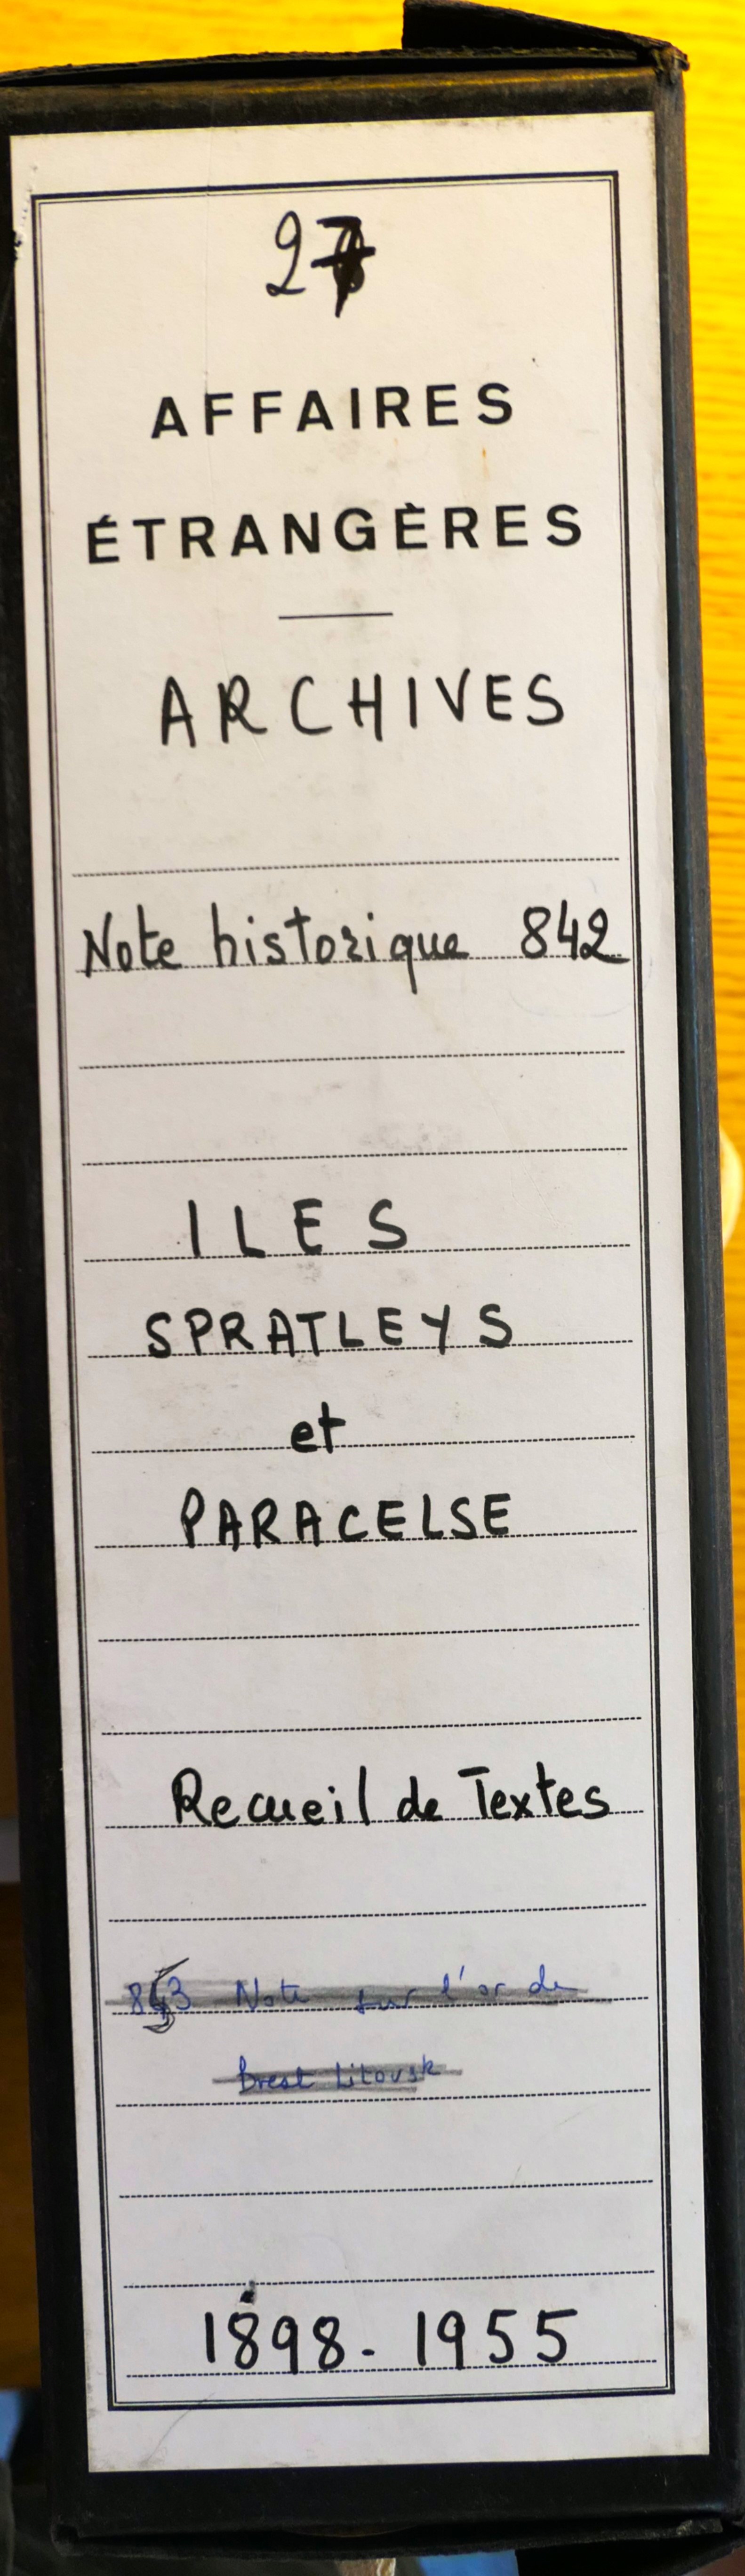 27
AFFAIRES
ÉTRANGÈRES
ARCHIVES
Note historique 842
ILES
SPRATLEYS
et
PARACELSE
Recueil de Textes
843 Note sur l'or de
Brest Litovsk
1898-1955